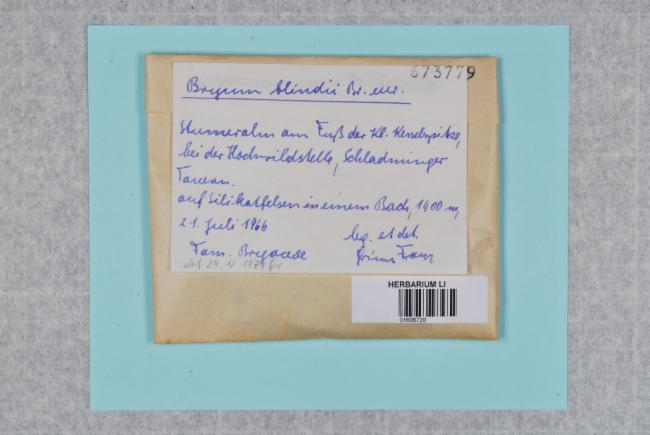 673779
Bryum blindii Br. eur.
Stummeralm am Fuß der Kl. Kesselspitze,
bei der Hochwildstelle, Schladminger
Tauern.
auf Silikatfelsen in einem Bach, 1400 m,
21. Juli 1966
leg. et det.
Fam. Bryaceae
Grims Franz
HERBARIUM LI
01606720